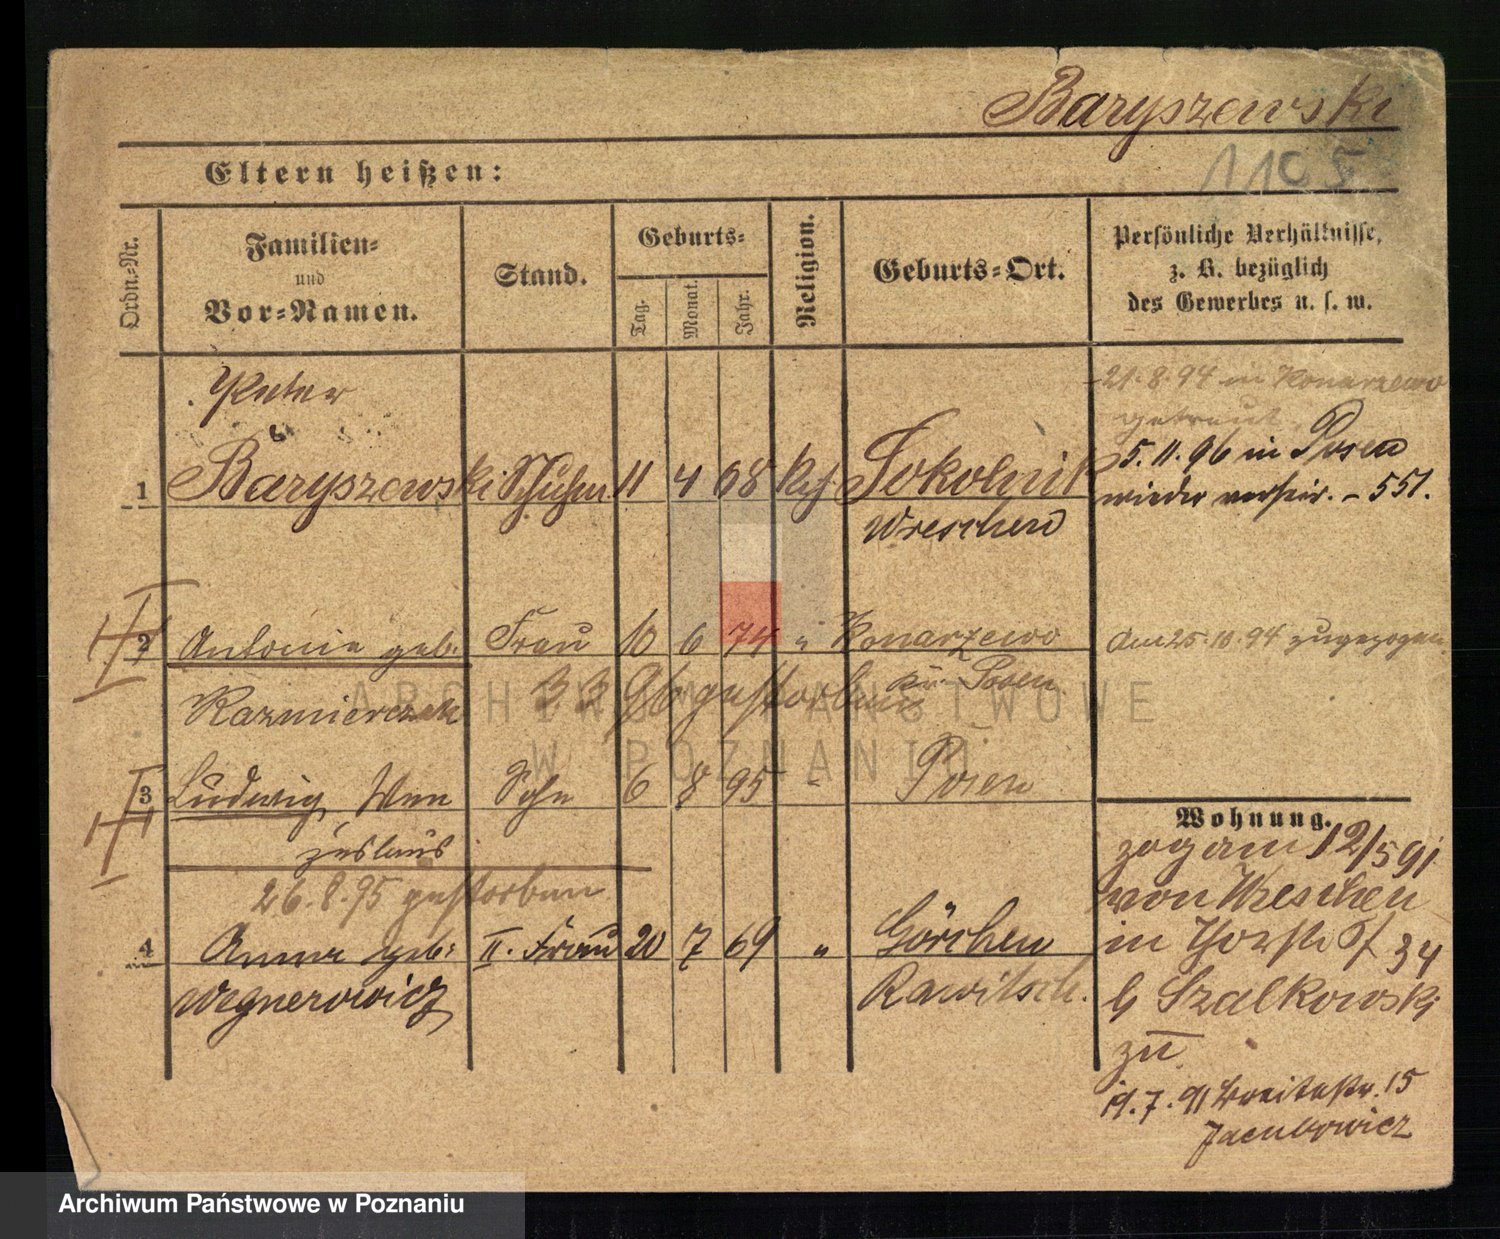 Baryszewski
1105
Eltern heißen:
Ordn.-Nr.
Familien-
und
Vor-Namen.
Stand.
Geburts-
Tag.
Monat.
Jahr.
Religion.
Geburts-Ort.
Persönliche Verhältnisse,
z. B. bezüglich
des Gewerbes u. s. w.
Peter
21.8.94 in Konarzewo
getraut
1 Baryszewski 11 4 68 Sokolnik
5. 11. 96 in Posen
wieder verheir. - 551.
Wreschen
2 Antonie geb. Frau 10 6 74 " Konarzewo
Am 25.10.94 zugezogen
Kazmierczak
96 gestorben
Kr. Posen
3 Ludwig, Wen Sohn 6 8 95 " Posen
zeslaus
26.8.95 gestorben
4 Anna geb. II. Frau 20 7 69 " Görchen
Wegnerowicz
Rawitsch.
Wohnung.
zog am 12/5 91
von Wreschen
in 34
b Szalkowski
zu
19.7.91 Breitestr. 15
Jacubowicz
ARCHIWUM PAŃSTWOWE
W POZNANIU
Archiwum Państwowe w Poznaniu